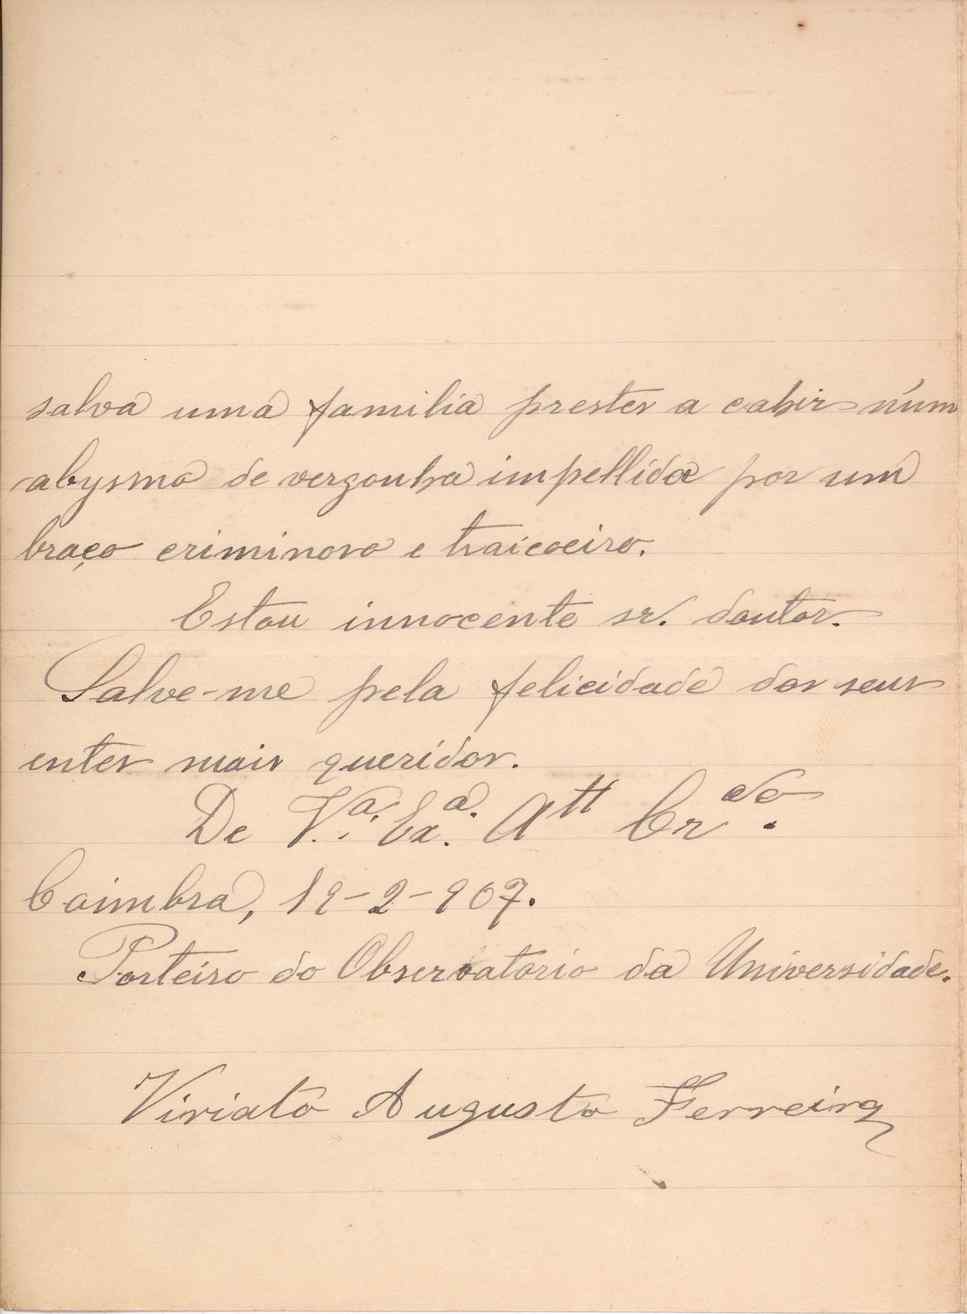 salva uma familia prestes a cahir n'um
abysmo de vergonha impellida por um
braço criminoso e traicoeiro.
Estou innocente sr. doutor.
Salve-me pela felicidade dos seus
entes mais queridos.
De V.ª Ex.ª Att Cr.do
Coimbra, 19-2-907.
Porteiro do Observatorio da Universidade.
Viriato Augusto Ferreira